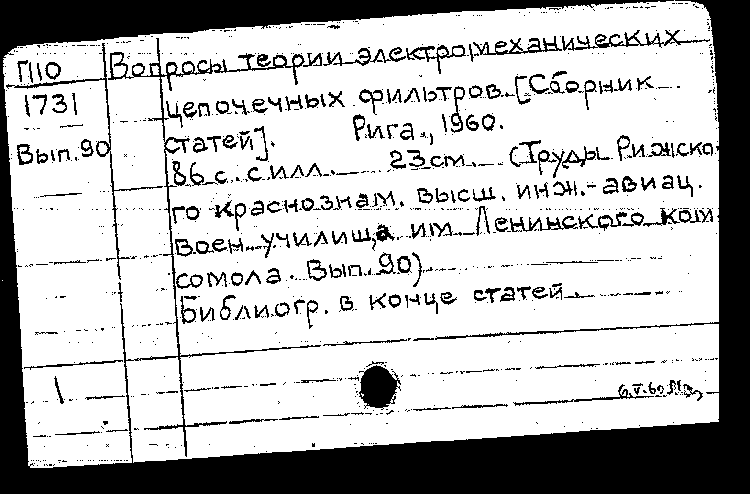 П110 Вопросы теории электромеханических
1731 цепочечных фильтров. [Сборник
Вып.90 статей]. Рига., 1960.
86 с. с илл. 23 см. (Труды Рижско
го краснознам. высш. инж.-авиац.
воен. училища им Ленинского ком
сомола. Вып. 90)
Библиогр. в конце статей.
6.V.60